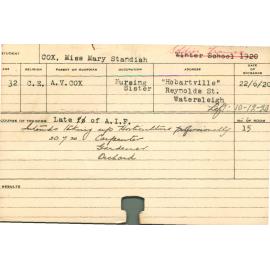 STUDENT
COX, Miss Mary Standish
Winter School 1920
AGE
RELIGION
PARENT OR GUARDIAN
OCCUPATION
ADDRESS
DATE OF ENTRANCE
32 C.E. A.V.COX Nursing Sister "Hobartville" Reynolds St. Watersleigh 22/6/20
Left 10-12-23
COURSE OF TRAINING
NO. OF ROOM
Late of A.I.F. 15
Intends taking up Horticulture professionally
20.7.20 Carpenter
Gardener
Orchard
RESULTS